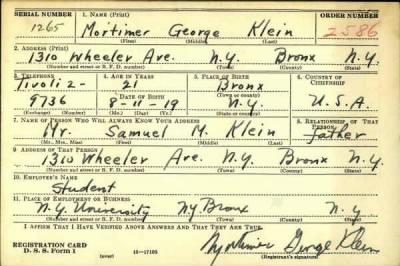 SERIAL NUMBER 1. NAME (Print) ORDER NUMBER
1265 Mortimer George Klein 2586
(First) (Middle) (Last)
2. ADDRESS (Print)
1310 Wheeler Ave. N.Y. Bronx N.Y.
(Number and street or R. F. D. number) (Town) (County) (State)
3. TELEPHONE 4. AGE IN YEARS 5. PLACE OF BIRTH 6. COUNTRY OF CITIZENSHIP
Tivoli 2- 21 Bronx
(Town or county)
9736 DATE OF BIRTH
8-11-19 N.Y. U.S.A.
(Exchange) (Number) (Mo.) (Day) (Yr.) (State or country)
7. NAME OF PERSON WHO WILL ALWAYS KNOW YOUR ADDRESS 8. RELATIONSHIP OF THAT PERSON
Mr. Samuel M. Klein Father
(Mr., Mrs., Miss) (First) (Middle) (Last)
9. ADDRESS OF THAT PERSON
1310 Wheeler Ave. N.Y. Bronx N.Y.
(Number and street or R. F. D. number) (Town) (County) (State)
10. EMPLOYER'S NAME
Student
11. PLACE OF EMPLOYMENT OR BUSINESS
N.Y. University N.Y. Bronx N.Y
(Number and street or R. F. D. number) (Town) (County) (State)
I AFFIRM THAT I HAVE VERIFIED ABOVE ANSWERS AND THAT THEY ARE TRUE.
REGISTRATION CARD Mortimer George Klein
D. S. S. Form 1 (over) 16-17105 (Registrant's signature)